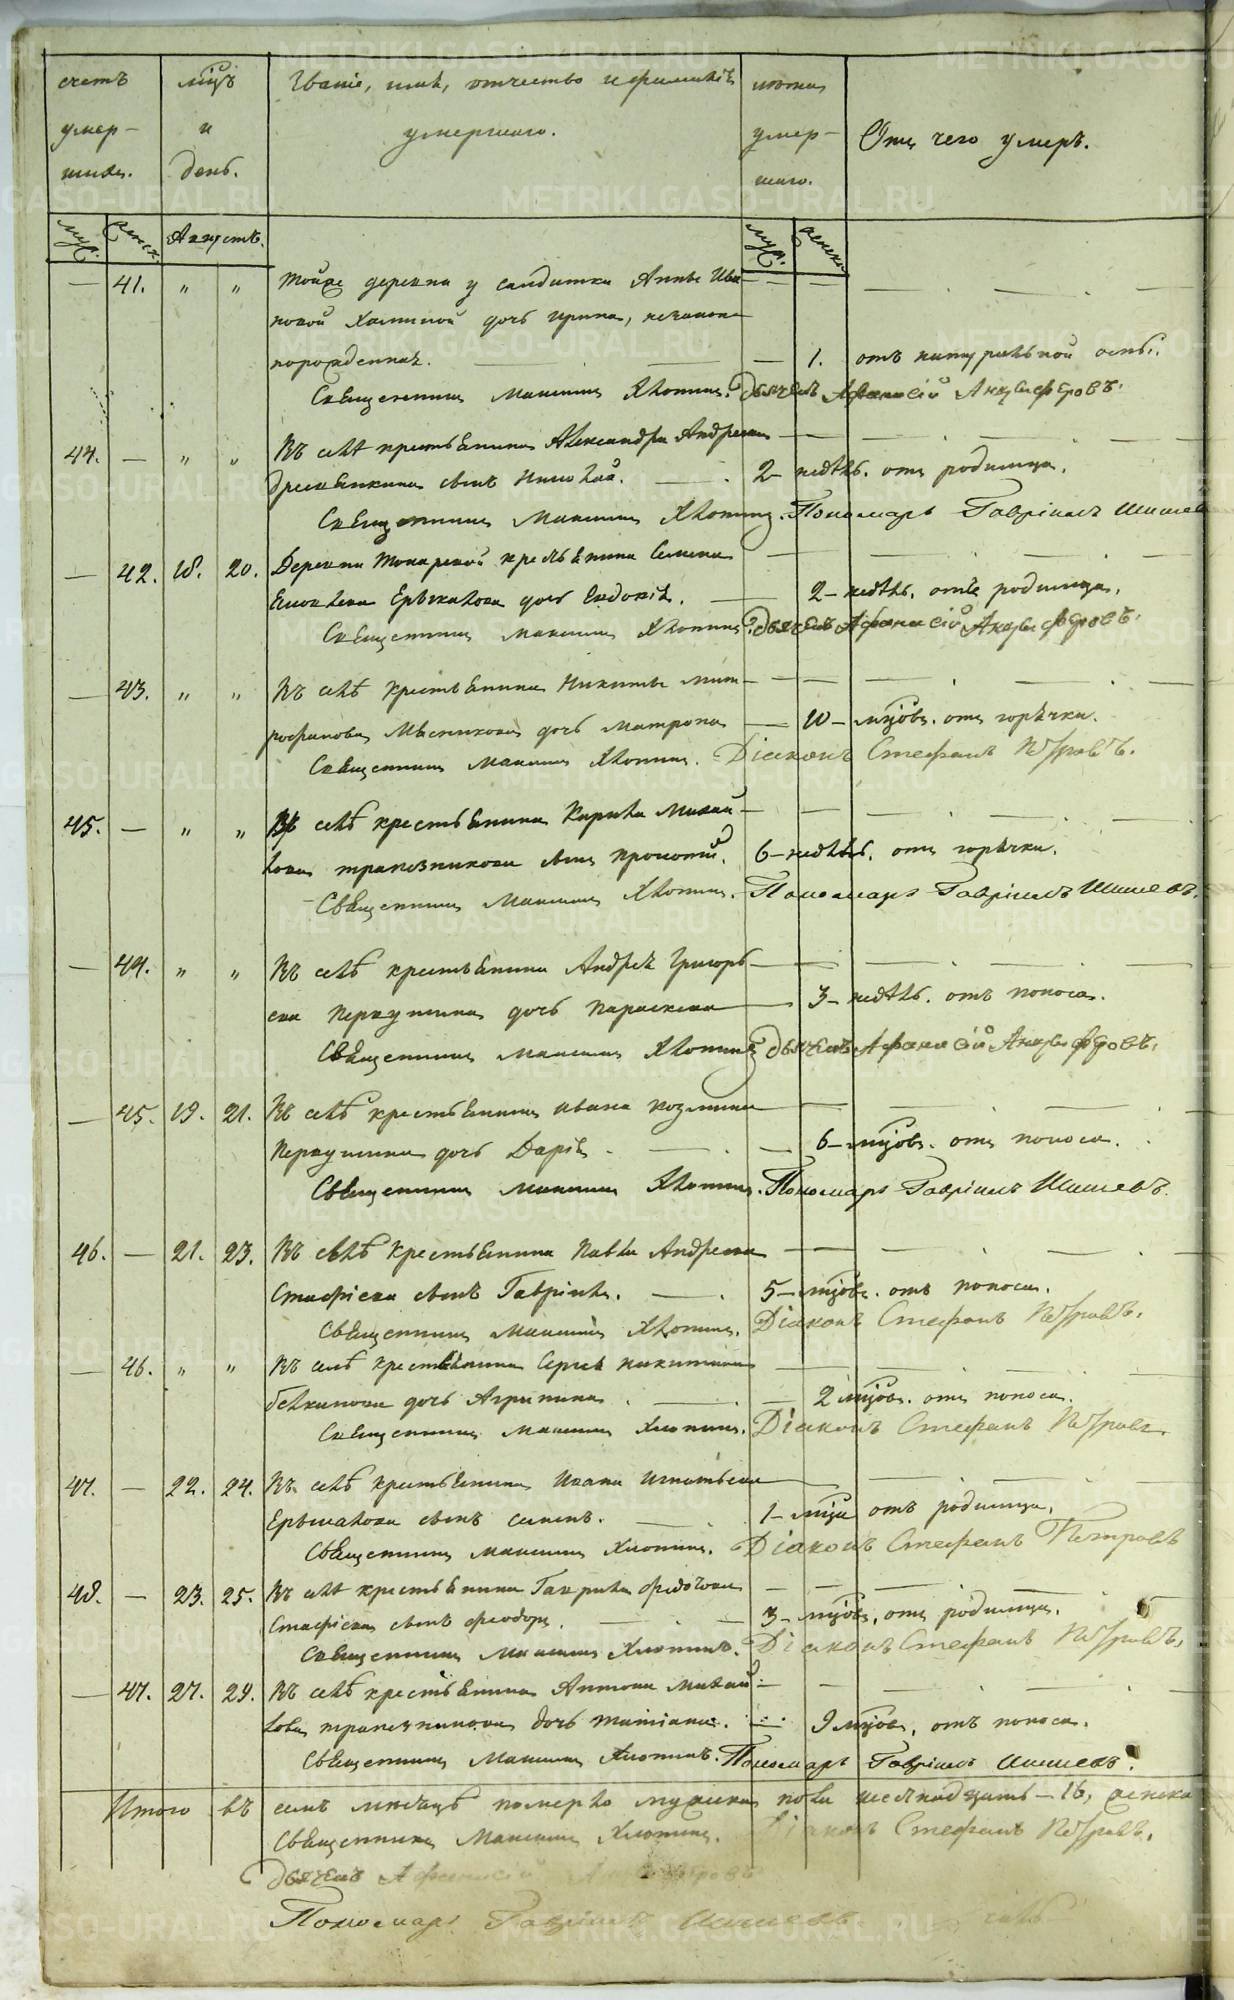 счетъ мцъ Званіе, имя, отчество и фамилія лѣта
умер- и умершаго. умер- Отъ чего умеръ.
шихъ. день. шаго.
муж. женск. Августъ. муж. женск.
— 41. " " Тойже деревни у салдатки Анны Ива-
новой дочь Ирина, незаконно
порожденная. — 1. отъ натуральной оспы.
Священникъ Максимъ Хлопинъ. Дьячекъ Афанасій
44. — " " Въ селѣ крестьянина Александра Андреева
сынъ Николай. 2 недѣль. отъ родимца.
Священникъ Максимъ Хлопинъ. Пономарь Гавріилъ Шишевъ
— 42. 18. 20. Деревни Токарской крестьянина Семена
дочь Евдокія. 2 недѣль. отъ родимца.
Священникъ Максимъ Хлопинъ. Дьячекъ Афанасій
— 43. " " Въ селѣ крестьянина Никиты Мит-
рофанова Мясникова дочь Матрона 10 мцовъ. отъ горячки.
Священникъ Максимъ Хлопинъ. Діаконъ Стефанъ Петровъ.
45. — " " Въ селѣ крестьянина Кирила Михай-
лова Трапезникова сынъ Прокопій. 6 недѣль. отъ горячки.
Священникъ Максимъ Хлопинъ. Пономарь Гавріилъ Шишевъ.
— 44. " " Въ селѣ крестьянина Андрея Григорь-
ева Первушина дочь Параскева 3 недѣль. отъ поноса.
Священникъ Максимъ Хлопинъ Дьячекъ Афанасій
— 45. 19. 21. Въ селѣ крестьянина Ивана Козмина
Первушина дочь Дарія. — 6 мцовъ. отъ поноса.
Священникъ Максимъ Хлопинъ. Пономарь Гавріилъ Шишевъ.
46. — 21. 23. Въ селѣ крестьянина Павла Андреева
сынъ Гавріилъ. 5 мцовъ. отъ поноса.
Священникъ Максимъ Хлопинъ. Діаконъ Стефанъ Петровъ.
— 46. " " Въ селѣ крестьянина Сергея Никитина
дочь Агрипина. — 2 мцовъ. отъ поноса.
Священникъ Максимъ Хлопинъ. Діаконъ Стефанъ Петровъ.
47. — 22. 24. Въ селѣ крестьянина Ивана Игнатьева
сынъ Семенъ. 1 мца отъ родимца.
Священникъ Максимъ Хлопинъ. Діаконъ Стефанъ Петровъ
48. — 23. 25. Въ селѣ крестьянина Гаврила
сынъ Феодоръ. 3 мцовъ, отъ родимца.
Священникъ Максимъ Хлопинъ. Діаконъ Стефанъ Петровъ.
— 47. 27. 29. Въ селѣ крестьянина Антона Михай-
лова Трапезникова дочь Татіана. 9 мцов, отъ поноса.
Священникъ Максимъ Хлопинъ. Пономарь Гавріилъ Шишевъ.
Итого въ семъ мѣсяцѣ померло мужска пола шеснадцать — 16, женска
Священникъ Максимъ Хлопинъ. Діаконъ Стефанъ Петровъ.
Дьячекъ Афанасій
Пономарь Гавріилъ Шишевъ
METRIKI.GASO-URAL.RU